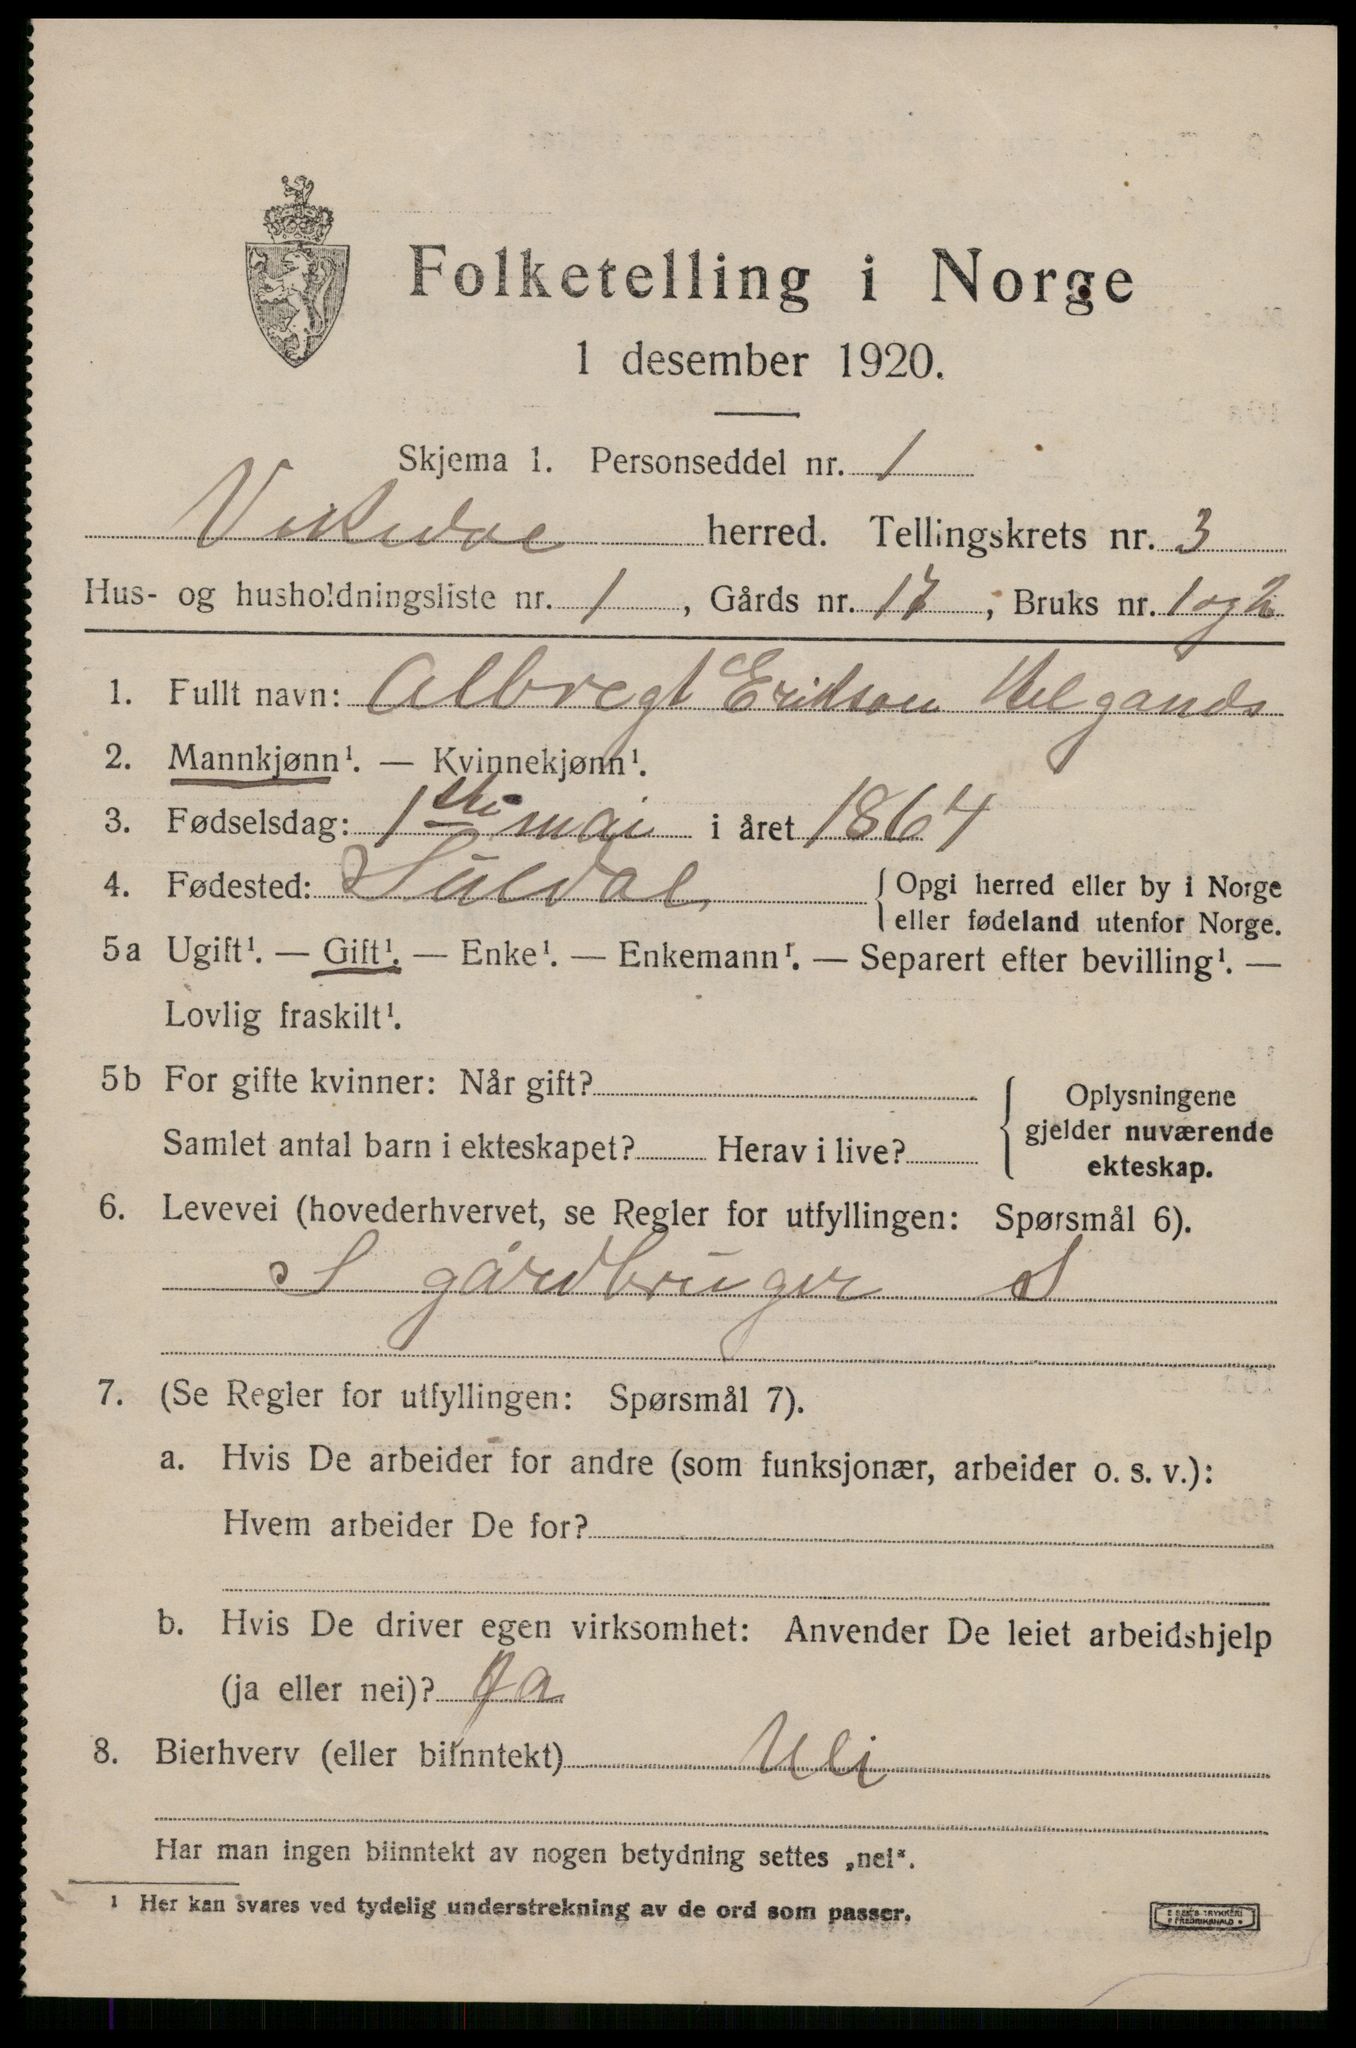 Folketelling i Norge
1 desember 1920.
Skjema 1. Personseddel nr. 1
Vikedal herred. Tellingskrets nr. 3
Hus- og husholdningsliste nr. 1, Gårds nr. 17, Bruks nr. 1 og 2
1. Fullt navn: Albregt Erikson Helgands
2. Mannkjønn¹. — Kvinnekjønn¹.
3. Fødselsdag: 1ste mai i året 1864
4. Fødested: Suldal {Opgi herred eller by i Norge
eller fødeland utenfor Norge.
5a Ugift¹. — Gift¹. — Enke¹. — Enkemann¹. — Separert efter bevilling¹. —
Lovlig fraskilt¹.
5b For gifte kvinner: Når gift?
Samlet antal barn i ekteskapet? Herav i live?
Oplysningene
gjelder nuværende
ekteskap.
6. Levevei (hovederhvervet, se Regler for utfyllingen: Spørsmål 6).
S gårdbruger S
7. (Se Regler for utfyllingen: Spørsmål 7).
a. Hvis De arbeider for andre (som funksjonær, arbeider o. s. v.):
Hvem arbeider De for?
b. Hvis De driver egen virksomhet: Anvender De leiet arbeidshjelp
(ja eller nei)? Ja
8. Bierhverv (eller biinntekt) Nei
Har man ingen biinntekt av nogen betydning settes „nei“.
¹ Her kan svares ved tydelig understrekning av de ord som passer.